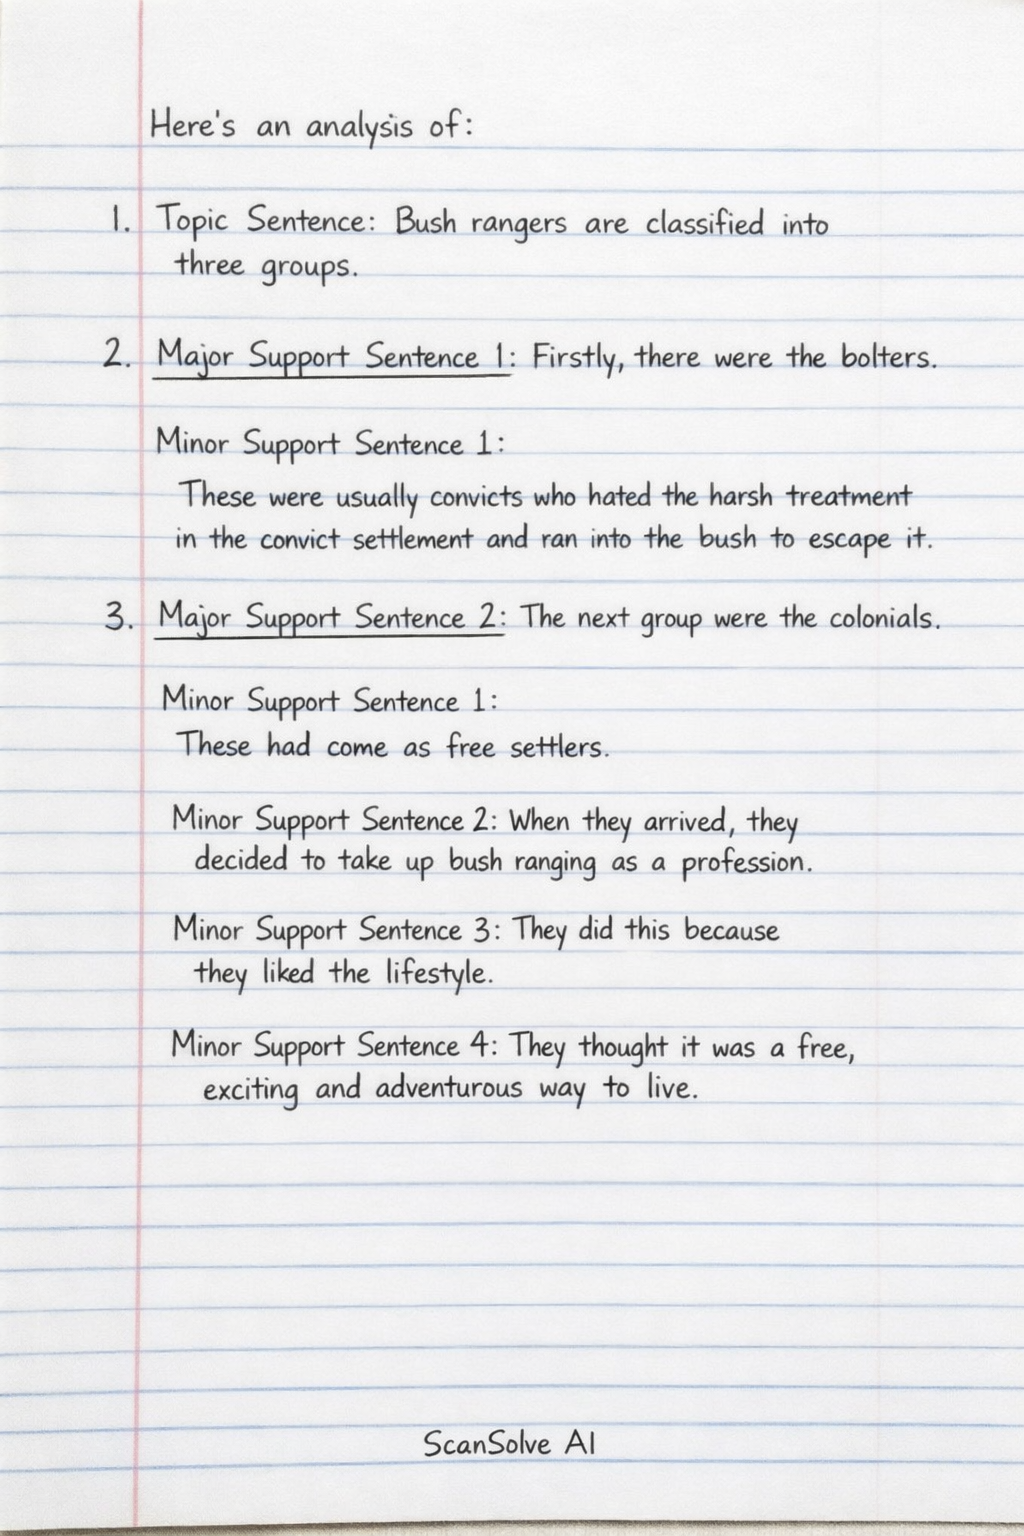 Here's an analysis of:
1. Topic Sentence: Bush rangers are classified into
three groups.
2. Major Support Sentence 1: Firstly, there were the bolters.
Minor Support Sentence 1:
These were usually convicts who hated the harsh treatment
in the convict settlement and ran into the bush to escape it.
3. Major Support Sentence 2: The next group were the colonials.
Minor Support Sentence 1:
These had come as free settlers.
Minor Support Sentence 2: When they arrived, they
decided to take up bush ranging as a profession.
Minor Support Sentence 3: They did this because
they liked the lifestyle.
Minor Support Sentence 4: They thought it was a free,
exciting and adventurous way to live.
ScanSolve AI